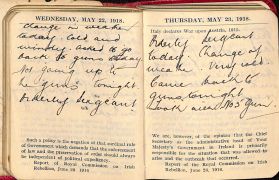 WEDNESDAY, MAY 22, 1918.
change in weather
today. Cold and
windy. asked to go
back to guns today
Not going up to
the guns tonight
Orderly Sergeant
Such a policy is the negation of that cardinal rule
of Government which demands that the enforcement
of law and the preservation of order should always
be independent of political expediency.
Report of Royal Commission on Irish
Rebellion, June 26, 1916
THURSDAY, MAY 23, 1918.
Italy declares War upon Austria, 1915.
Orderly Sergeant
today. Change of
Very cold.
Came back to
guns tonight
No 3 gun
We are, however, of the opinion that the Chief
Secretary as the administrative head of Your
Majesty's Government in Ireland is primarily
responsible for the situation that was allowed to
arise and the outbreak that occurred.
Report of the Royal Commission on Irish
Rebellion, June 26, 1916.